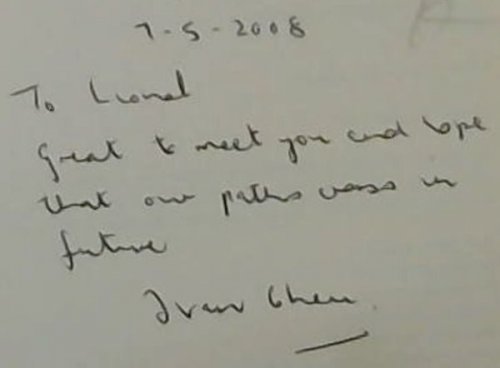 7-5-2008
To Lionel
Great to meet you and hope
that our paths cross in
future
Ivan Chen